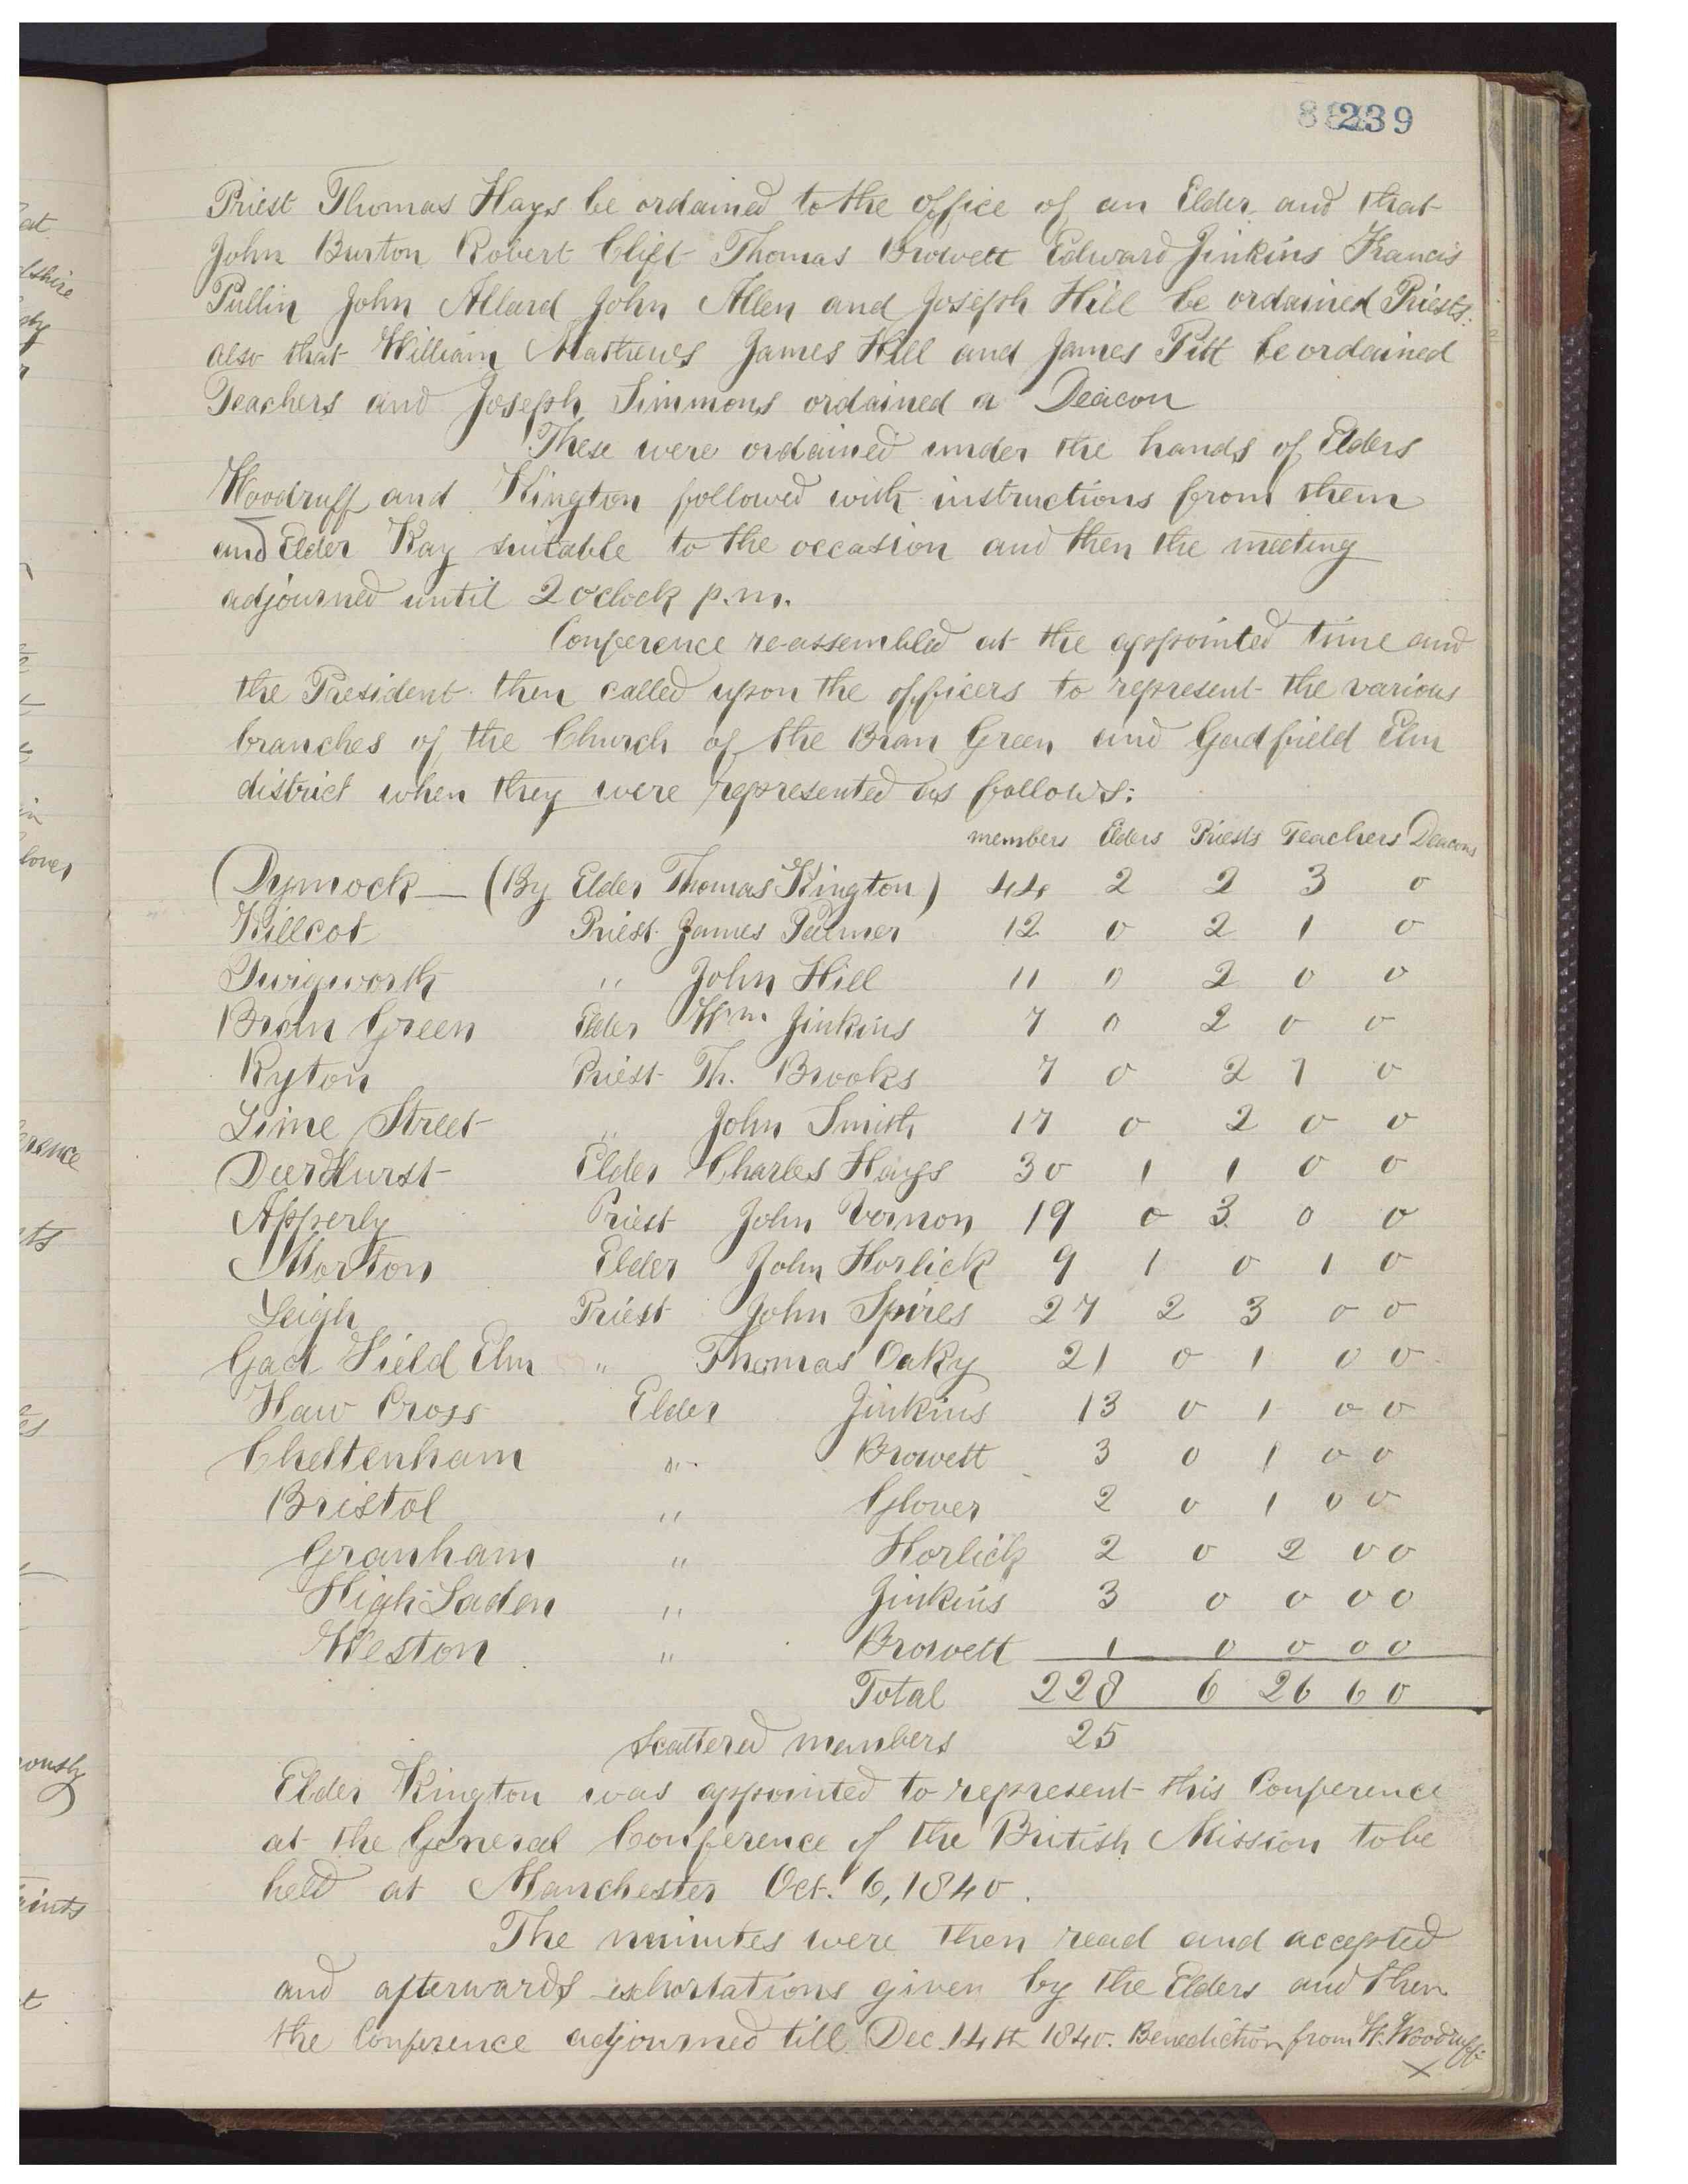 239
Priest Thomas Hays be ordained to the office of an Elder and that
John Burton Robert Clift Thomas Browett Edward Jinkins Francis
Pullin John Allard John Allen and Joseph Hill be ordained Priests:
also that William Mathews James Hill and James Pitt be ordained
Teachers and Joseph Simmons ordained a Deacon
These were ordained under the hands of Elders
Woodruff and Kington followed with instructions from them
and Elder Kay suitable to the occasion and then the meeting
adjourned until 2 o'clock p.m.
Conference re-assembled at the appointed time and
the President then called upon the officers to represent the various
branches of the Church of the Bran Green and Gadfield Elm
district when they were represented as follows:
members Elders Priests Teachers Deacons
(Dymock — (By Elder Thomas Kington) 44 2 2 3 0
Killcot Priest James Palmer 12 0 2 1 0
Twigworth " John Hill 11 0 2 0 0
Bran Green Elder Wm Jinkins 7 0 2 0 0
Ryton Priest Th. Brooks 7 0 2 1 0
Lime Street " John Smith 17 0 2 0 0
Deerhurst Elder Charles Hays 30 1 1 0 0
Apperly Priest John Vernon 19 0 3 0 0
Norton Elder John Horlick 9 1 0 1 0
Leigh Priest John Spires 27 2 3 0 0
Gad Field Elm " Thomas Oaky 21 0 1 0 0
Haw Cross Elder Jinkins 13 0 1 0 0
Cheltenham " Browett 3 0 1 0 0
Bristol " Glover 2 0 1 0 0
Granham " Horlick 2 0 2 0 0
High Laden " Jinkins 3 0 0 0 0
Weston " Browett 1 0 0 0 0
Total 228 6 26 6 0
scattered members 25
Elder Kington was appointed to represent this Conference
at the General Conference of the British Mission to be
held at Manchester Oct. 6, 1840.
The minutes were then read and accepted
and afterwards exhortations given by the Elders and then
the Conference adjourned till Dec. 14th 1840. Benediction from W. Woodruff.
X